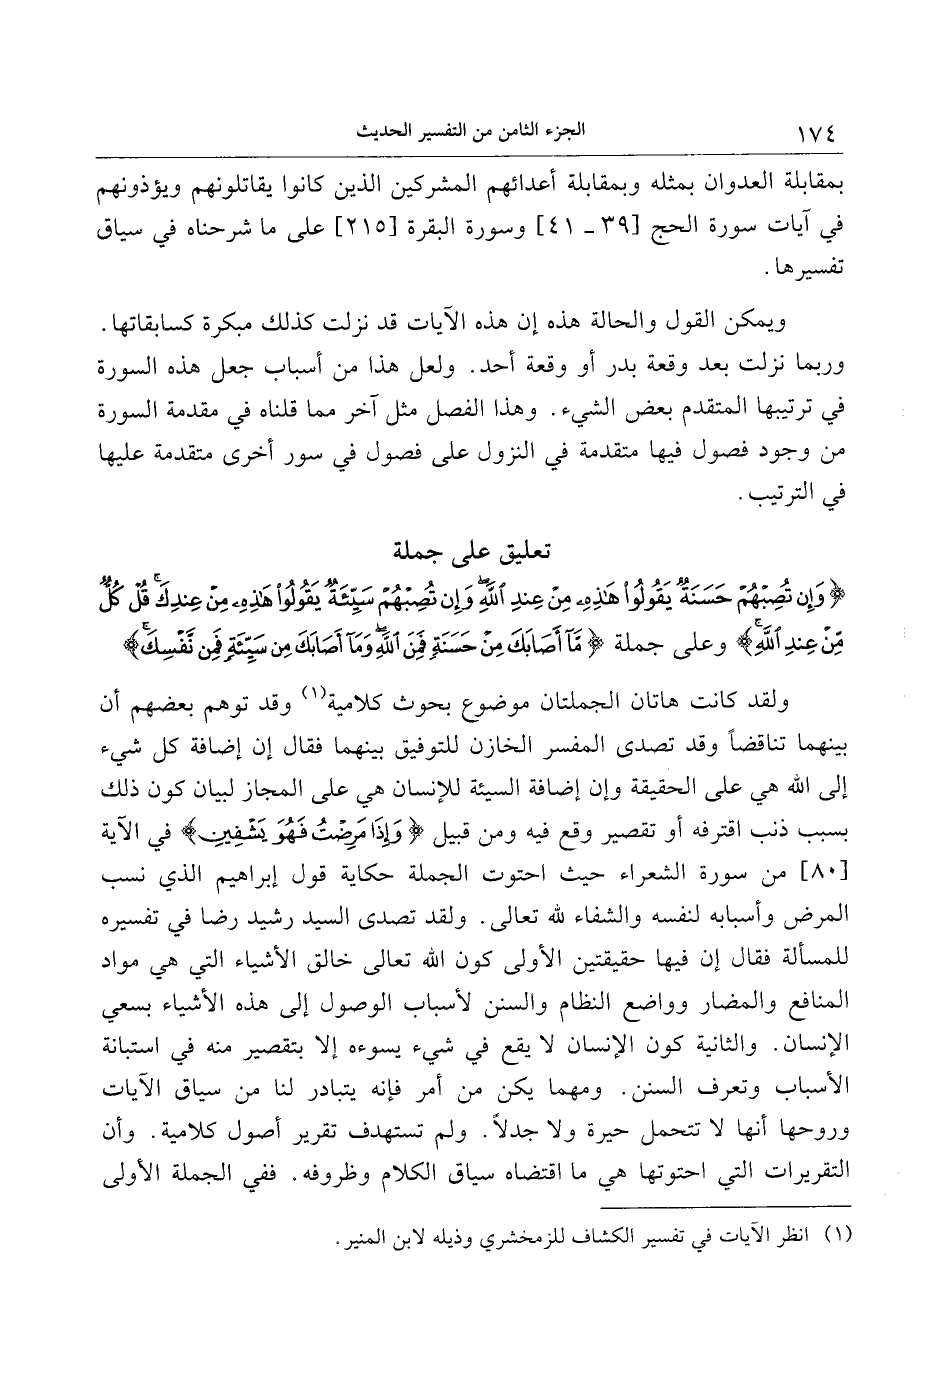 ١٧٤ الجزء الثامن من التفسير الحديث
بمقابلة العدوان بمثله وبمقابلة أعدائهم المشركين الذين كانوا يقاتلونهم ويؤذونهم
في آيات سورة الحج [٣٩ ـ ٤١] وسورة البقرة [٢١٥] على ما شرحناه في سياق
تفسيرها.
ويمكن القول والحالة هذه إن هذه الآيات قد نزلت كذلك مبكرة كسابقاتها.
وربما نزلت بعد وقعة بدر أو وقعة أحد. ولعل هذا من أسباب جعل هذه السورة
في ترتيبها المتقدم بعض الشيء. وهذا الفصل مثل آخر مما قلناه في مقدمة السورة
من وجود فصول فيها متقدمة في النزول على فصول في سور أخرى متقدمة عليها
في الترتيب.
تعليق على جملة
﴿وَإِن تُصِبْهُمْ حَسَنَةٌ يَقُولُوا۟ هَٰذِهِۦ مِنْ عِندِ ٱللَّهِۖ وَإِن تُصِبْهُمْ سَيِّئَةٌ يَقُولُوا۟ هَٰذِهِۦ مِنْ عِندِكَۚ قُلْ كُلٌّ
مِّنْ عِندِ ٱللَّهِۚ﴾ وعلى جملة ﴿مَّآ أَصَابَكَ مِنْ حَسَنَةٍ فَمِنَ ٱللَّهِۖ وَمَآ أَصَابَكَ مِن سَيِّئَةٍ فَمِن نَّفْسِكَۚ﴾
ولقد كانت هاتان الجملتان موضوع بحوث كلامية(١) وقد توهم بعضهم أن
بينهما تناقضاً وقد تصدى المفسر الخازن للتوفيق بينهما فقال إن إضافة كل شيء
إلى الله هي على الحقيقة وإن إضافة السيئة للإنسان هي على المجاز لبيان كون ذلك
بسبب ذنب اقترفه أو تقصير وقع فيه ومن قبيل ﴿وَإِذَا مَرِضْتُ فَهُوَ يَشْفِينِ﴾ في الآية
[٨٠] من سورة الشعراء حيث احتوت الجملة حكاية قول إبراهيم الذي نسب
المرض وأسبابه لنفسه والشفاء لله تعالى. ولقد تصدى السيد رشيد رضا في تفسيره
للمسألة فقال إن فيها حقيقتين الأولى كون الله تعالى خالق الأشياء التي هي مواد
المنافع والمضار وواضع النظام والسنن لأسباب الوصول إلى هذه الأشياء بسعي
الإنسان. والثانية كون الإنسان لا يقع في شيء يسوءه إلا بتقصير منه في استبانة
الأسباب وتعرف السنن. ومهما يكن من أمر فإنه يتبادر لنا من سياق الآيات
وروحها أنها لا تتحمل حيرة ولا جدلاً. ولم تستهدف تقرير أصول كلامية. وأن
التقريرات التي احتوتها هي ما اقتضاه سياق الكلام وظروفه. ففي الجملة الأولى
(١) انظر الآيات في تفسير الكشاف للزمخشري وذيله لابن المنير.